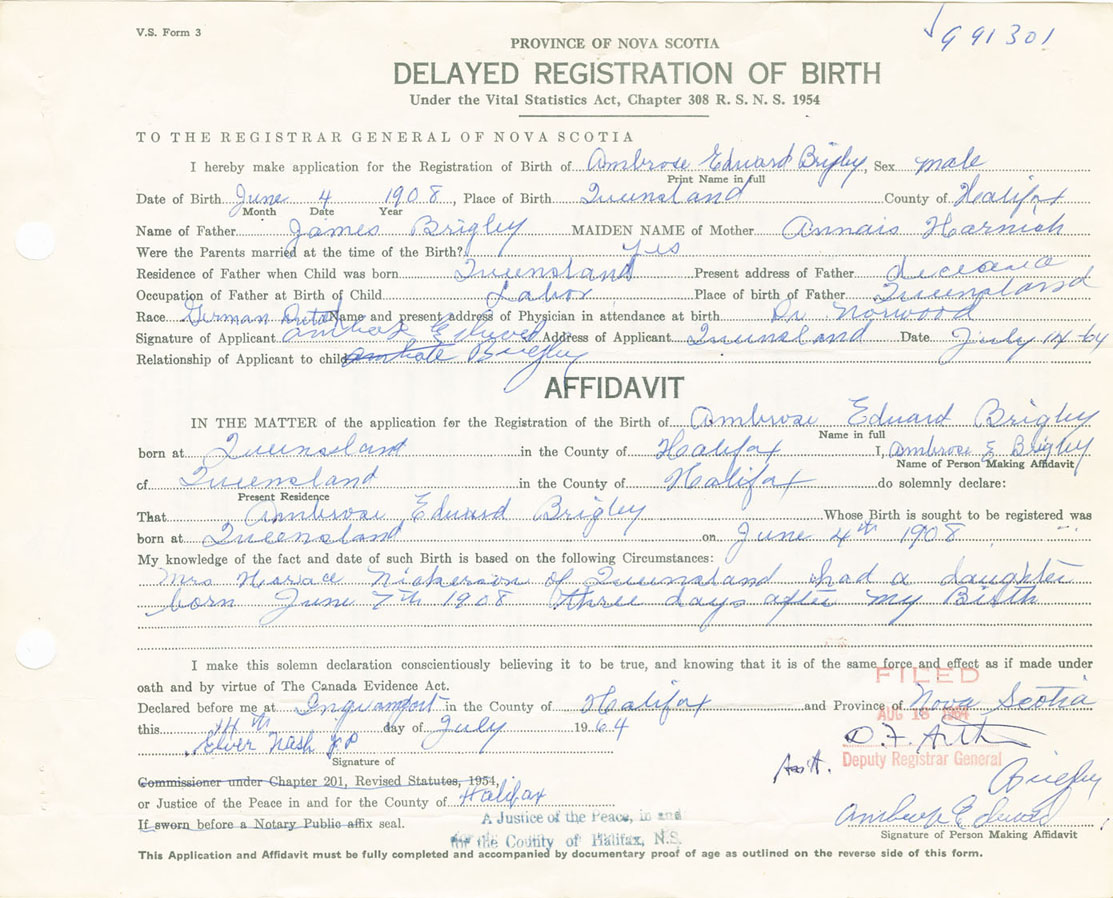 V.S. Form 3
991301
PROVINCE OF NOVA SCOTIA
DELAYED REGISTRATION OF BIRTH
Under the Vital Statistics Act, Chapter 308 R. S. N. S. 1954
TO THE REGISTRAR GENERAL OF NOVA SCOTIA
I hereby make application for the Registration of Birth of Ambrose Eduard Brigley, Sex male
Print Name in full
Date of Birth June 4 1908, Place of Birth Queensland County of Halifax
Month Date Year
Name of Father James Brigley MAIDEN NAME of Mother Annais Harnish
Were the Parents married at the time of the Birth? yes
Residence of Father when Child was born Queensland Present address of Father
Occupation of Father at Birth of Child Labor Place of birth of Father Queensland
Race German Name and present address of Physician in attendance at birth Dr Norwood
Signature of Applicant Address of Applicant Queensland Date July 14-64
Relationship of Applicant to child Brigley
AFFIDAVIT
IN THE MATTER of the application for the Registration of the Birth of Ambrose Eduard Brigley
Name in full
born at Queensland in the County of Halifax I, Ambrose E Brigley
Name of Person Making Affidavit
of Queensland in the County of Halifax do solemnly declare:
Present Residence
That Ambrose Eduard Brigley Whose Birth is sought to be registered was
born at Queensland on June 4th 1908
My knowledge of the fact and date of such Birth is based on the following Circumstances:
Mrs Horace Nickerson of Queensland had a daughter
born June 7th 1908 three days after my Birth
I make this solemn declaration conscientiously believing it to be true, and knowing that it is of the same force and effect as if made under
oath and by virtue of The Canada Evidence Act.
FILED
Declared before me at in the County of Halifax and Province of Nova Scotia
AUG 18 1964
this 14th day of July 1964
Elver Nash JP
Signature of
Ass't. Deputy Registrar General
Commissioner under Chapter 201, Revised Statutes, 1954,
or Justice of the Peace in and for the County of Halifax
Brigley
A Justice of the Peace, in and
If sworn before a Notary Public affix seal.
for the County of Halifax, N.S.
Signature of Person Making Affidavit
This Application and Affidavit must be fully completed and accompanied by documentary proof of age as outlined on the reverse side of this form.